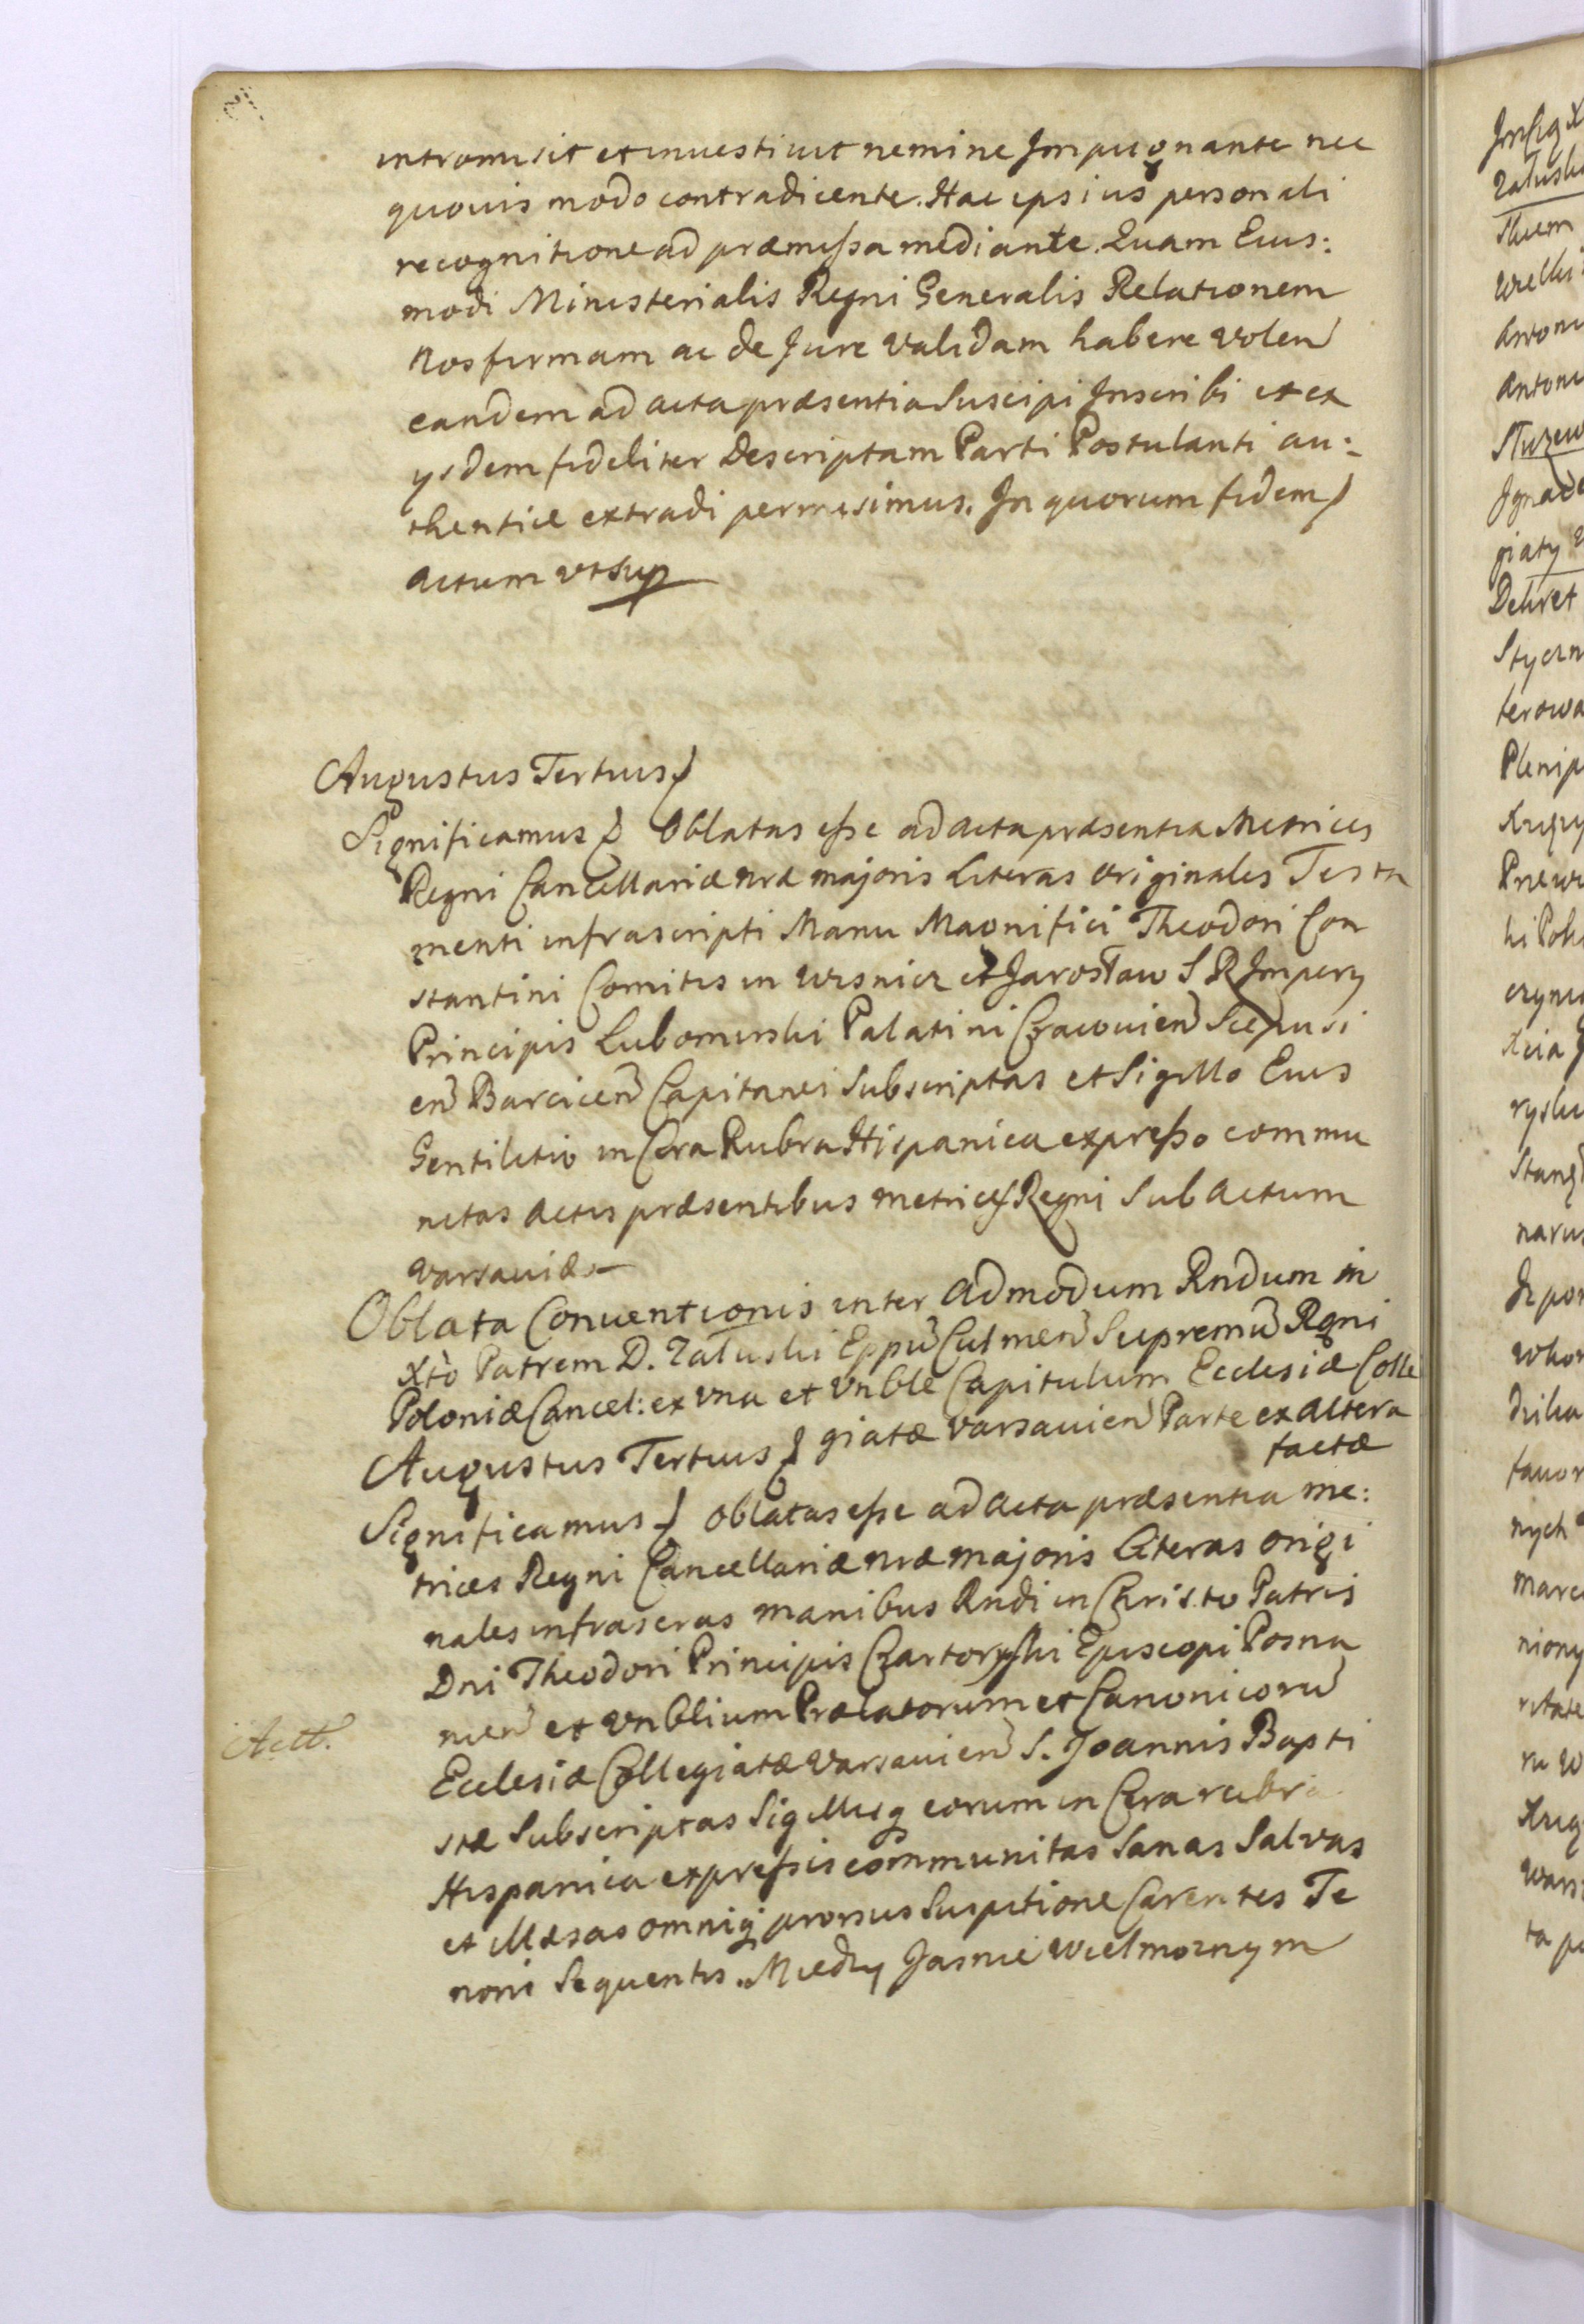 intromisit et investivit nemine Impugnante nec
quovis modo contradicente. Hac ipsius personali
recognitione ad præmissa mediante. Quam Eius:
modi Ministerialis Regni Generalis Relationem
Nos firmam ac de Jure validam habere volen
eandem ad acta præsentia Suscipi Inscribi et ex
ysdem fideliter Descriptam Parti Postulanti au:
thentice extradi permisimus. In quorum fidem
actum vt sup
Augustus Tertius
Significamus Oblatas esse ad acta præsentia Metrices
Regni Cancellariæ nræ majoris Literas Originales Testa
menti infrascripti Manu Magnifici Theodori Con
stantini Comitis in Wisnicz et Jarosław S R Impery
Principis Lubomirski Palatini Cracovien Scepusi
en Barcicen Capitanei Subscriptas et Sigillo Eius
Gentilitio in Cera Rubra Hispanica expresso commu
nitas Actis præsentibus metrices Regni Sub Actum
Varsaviæ
Oblata Conventionis inter Admodum Rndum in
Xto Patrem D. Załuski Eppu Culmen Supremu Regni
Poloniæ Cancel: ex vna et Vnble Capitulum Ecclesiæ Colle
Augustus Tertius giatæ Varsavien Parte ex altera
factæ
Significamus Oblatas esse ad Acta præsentia me:
trices Regni Cancellariæ nræ majoris Literas origi
nales infrascras manibus Rndi in Christo Patris
Dni Theodori Principis Czartoryski Episcopi Posna
nien et Vnblium Prælatorum et Canonicoru
Actt. Ecclesiæ Collegiatæ Varsavien S. Joannis Bapti
stæ Subscriptas Sigillisq eorum in Cera rubra
Hispanica expressis communitas Sanas Salvas
et Illæsas omniq prorsus Suspitione Carentes Te
noris Sequentis. Miedzy Jasnie Wielmoznym